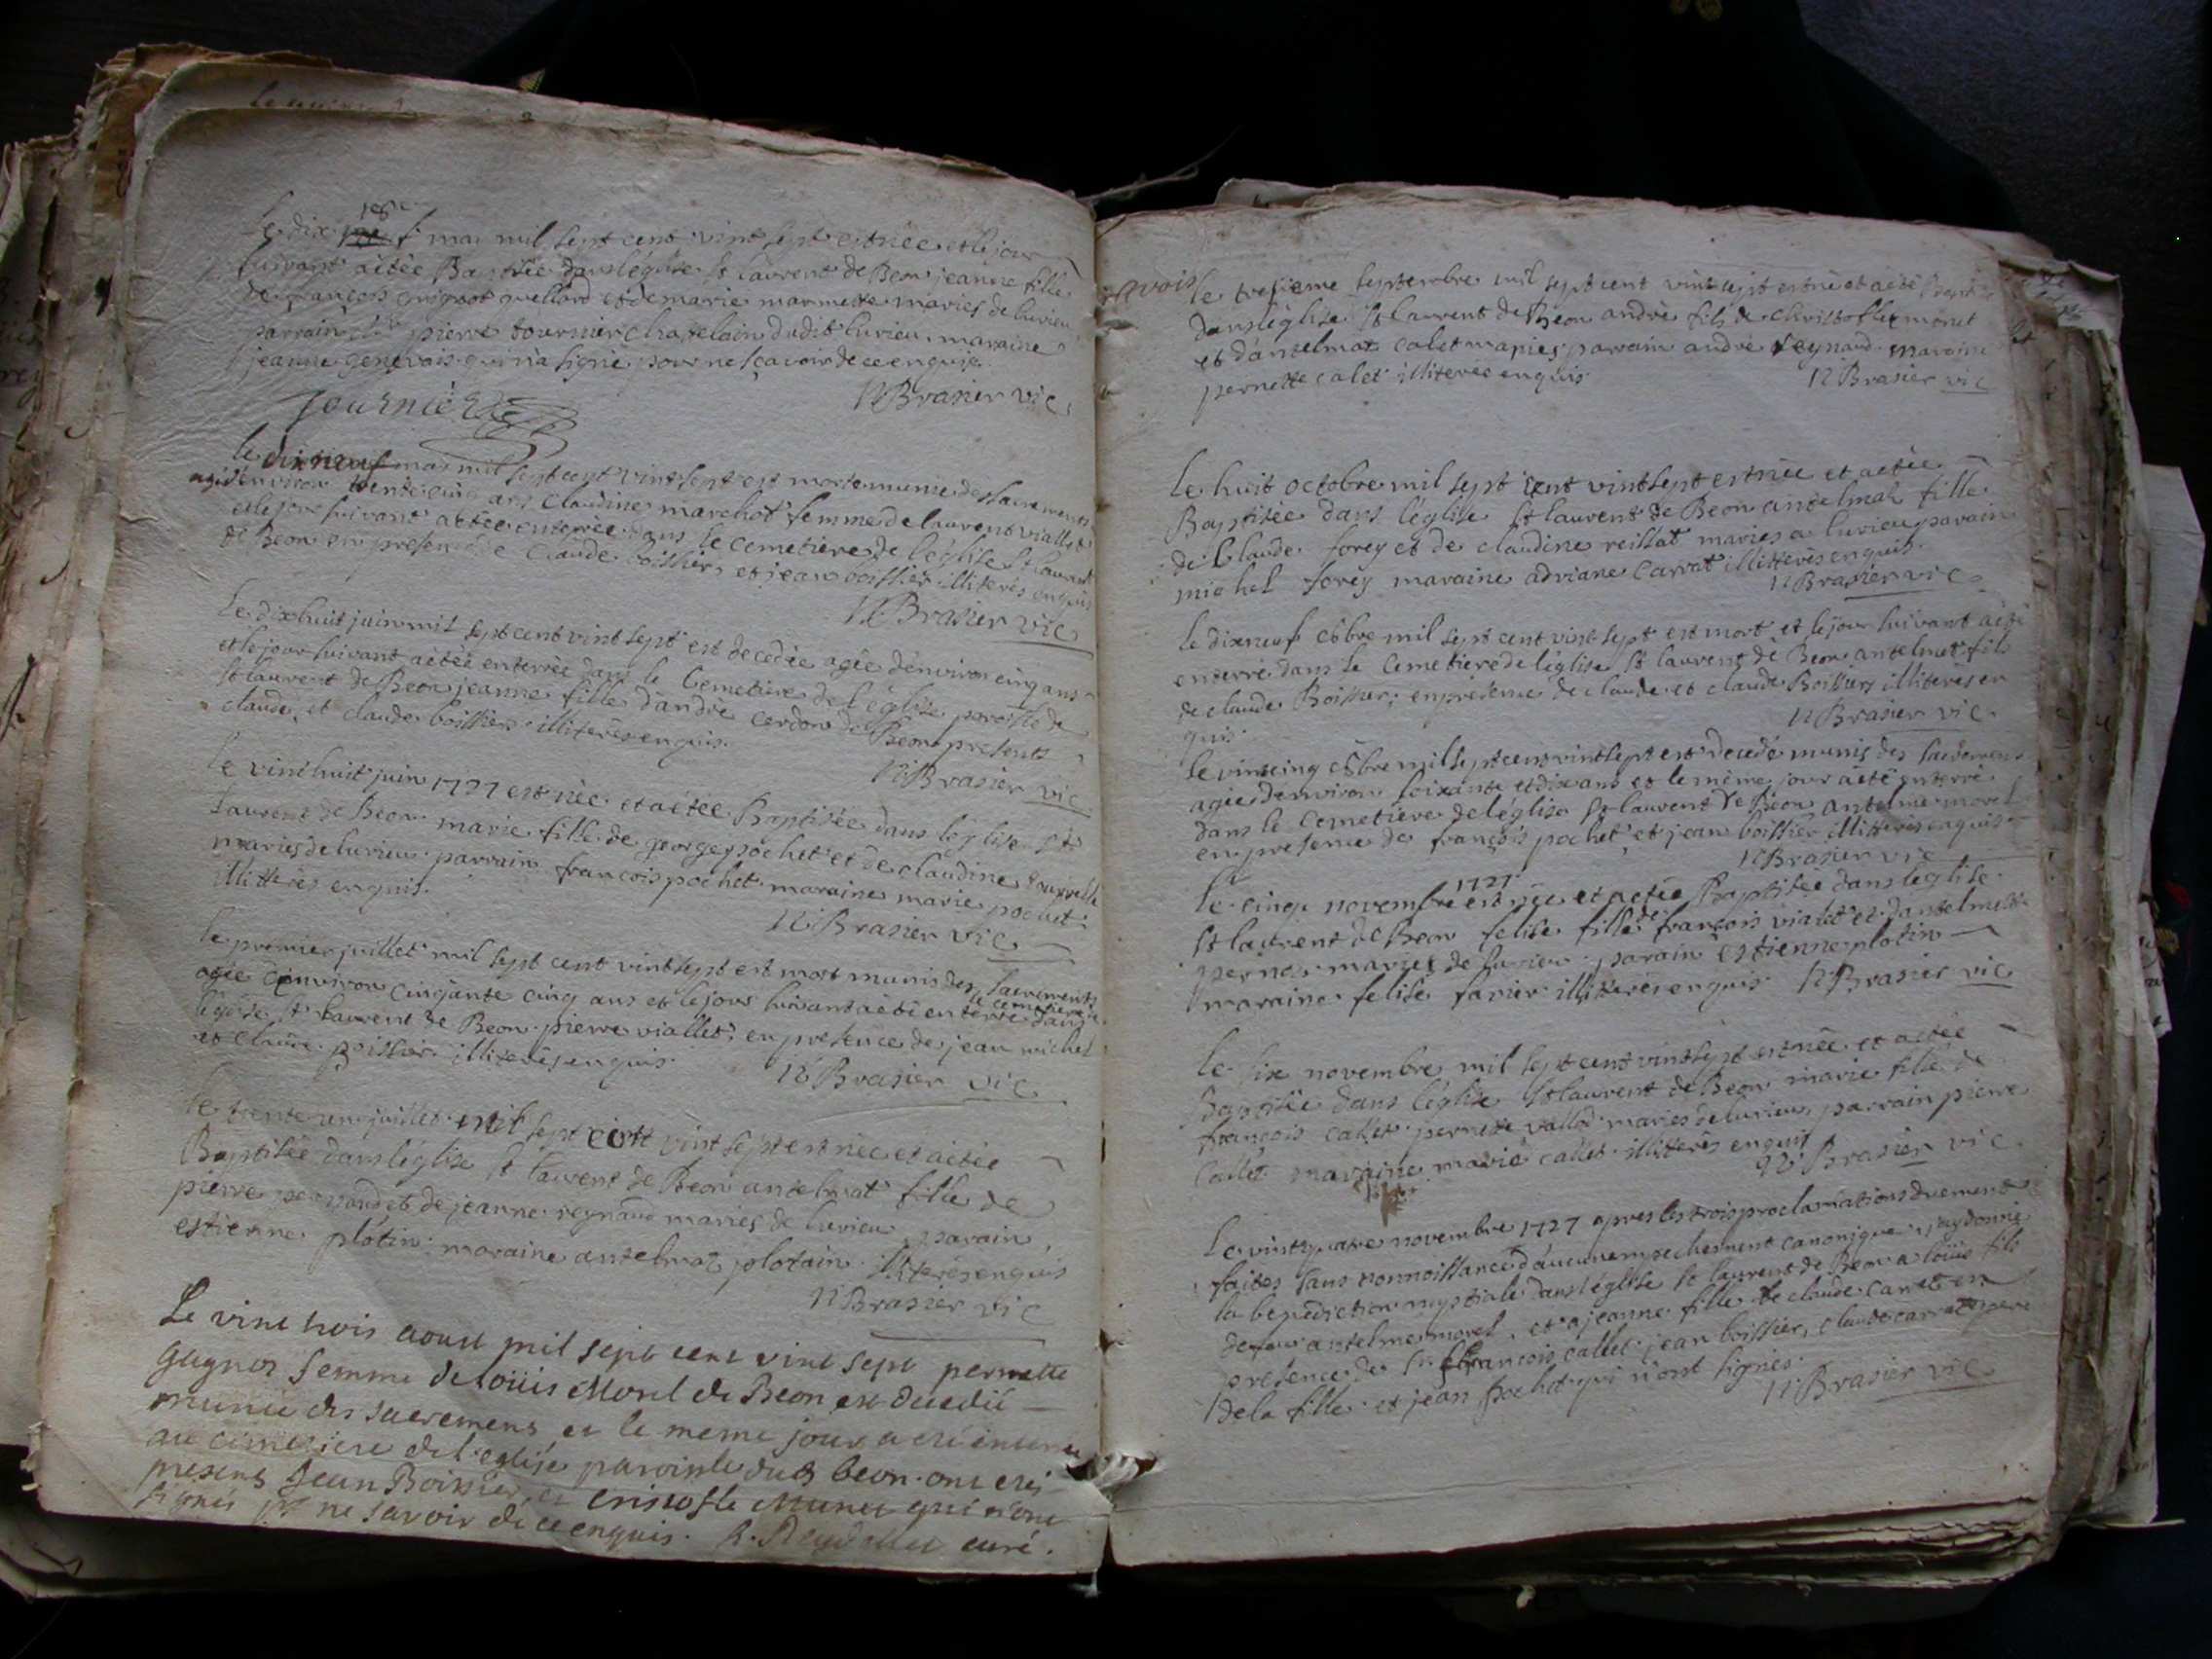 18e
Le dix mai mil sept cent vint sept est née et le jour
suivant a étée Baptisée dans léglise St laurent de Beon jeanne fille
de françois et de marie mariés de lurieu
parrain Sr pierre tournier chatelain dudit lurieu maraine
jeanne genevais qui n'a signé pour ne sçavoir de ce enquise
N Brasier vic
Tournier
le dixneuf mai mil sept cent vint sept est morte munie des sacremens
agé d'environ trente cinq ans claudine marchot femme de laurent viallet
et le jour suivant a étée enterrée dans le cemetiere de l'église St laurent
de Beon en presence de Claude boissier, et jean boissier illiterés enquis
N Brasier vic
Le dixhuit juin mil sept cent vint sept est decedée agée d'environ cinq ans
et le jour suivant a étée enterrée dans le Cemetiere de l'église paroisse de
St laurent de Beon jeanne fille d'andré cerdon de Beon presents
claude, et claude boissiers illiterés enquis.
N Brasier vic
le vint huit juin 1727 est née et a étée Baptisée dans léglise St
Laurent de Beon marie fille de george pochet et de claudine
mariés de lurieu parrain françois pochet maraine marie pochet
illitterés enquis.
N Brasier vic
le premier juillet mil sept cent vint sept est mort munis des sacrements
agée d'environ cinqante cinq ans et le jour suivant a été enterré dans
le cemetiere de
léglise St laurent de Beon pierre viallet, en presence de jean michel
et claude Boissier illiterés enquis.
N Brasier vic
le trente un juillet mil sept cent vint sept est née et a étée
Baptisée dans léglise St laurent de Beon antelmat fille de
pierre et de jeanne reynaud mariés de lurieu parain
estienne plotin maraine antelmaz plotain illiterés enquis
N Brasier vic
Le vint trois aoust mil sept cent vint sept pernette
Gagnor femme de Loüis Morel de Beon est decedée
munie des sacremens et le meme jour a été enterrée
au cimetiere de l'eglise paroissle dudt beon ont etés
presens Jean Boissier, et cristofle Munet qui n'ont
signés pr ne savoir de ce enquis. curé.
le tresieme septembre mil sept cent vint sept est né et a été
dans léglise St laurent de Beon andré fils de Christofle monet
et d'antelmaz calet mariés parrain andré reynaud maraine
pernette calet illiterée enquis
N Brasier vic
Le huit octobre mil sept cent vint sept est née et a étée
Baptisée dans l'église St laurent de Beon antelmaz fille
de Claude forey et de claudine reissat mariés a lurieu parain
michel forey maraine adriane carrat illitterés enquis.
N Brasier vic
Le dixneuf 8bre mil sept cent vint sept est mort et le jour suivant a été
enterré dans le cemetiere de léglise St laurent de Beon antelmet fils
de claude Boissier; en presence de claude et claude Boissiers illiterés en
quis.
N Brasier vic
le vint cinq 8bre mil sept cent vint sept est decedé munis des sacremens
agée d'environ soixante et dix ans et le même jour a été enterré
dans le cemetiere de léglise St laurent de Beon antelme morel
en presence de françois pochet, et jean boissier illitterés enquis
N Brasier vic
1727
le cinq novembre est née et a étée Baptisée dans léglise
St laurent de Beon felise fille de françois vialet et d'antelmette
pernos mariés de lurieu parain estienne plotin
maraine felise farier illiterés enquis N Brasier vic
Le six novembre mil sept cent vint sept est née et a étée
Baptisée dans l'église St laurent de Beon marie fille de
françois callet pernette mariés de lurieu, parrain pierre
Callet maraine marie callet illitterés enquis
N Brasier vic
Le vint quatre novembre 1727 apres les trois proclamations duement
faites sans connoissance d'aucun empechement canonique, j'ay donné
la benediction nuptiale dans léglise St laurent de Beon a loüis fils
de feu antelme morel, et a jeanne fille de claude carret en
presence de françois callet jean boissier, claude carrat pere
de la fille et jean pochet qui n'ont signés.
N Brasier vic